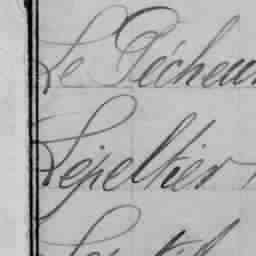 Le Pécheur
Lepeltier